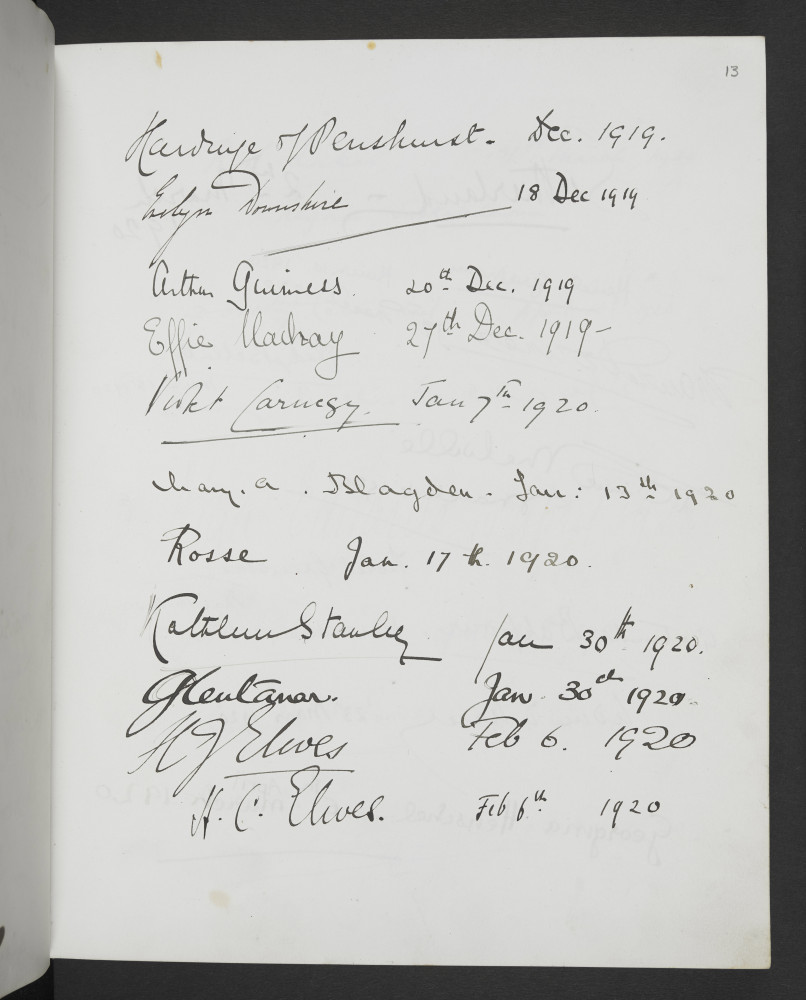 13
Hardinge of Penshurst. Dec. 1919.
Evelyn Downshire 18 Dec 1919
Arthur Guinness. 20th Dec. 1919
Effie Mackay 27th Dec. 1919-
Violet Carnegy. Jan 7th 1920.
Mary. A. Blagden. Jan: 13th 1920
Rosse Jan. 17th. 1920.
Kathleen Stanley Jan 30th 1920.
Glentanar. Jan 30th 1920.
H J Elwes Feb 6. 1920
H. C. Elwes. Feb 6th 1920